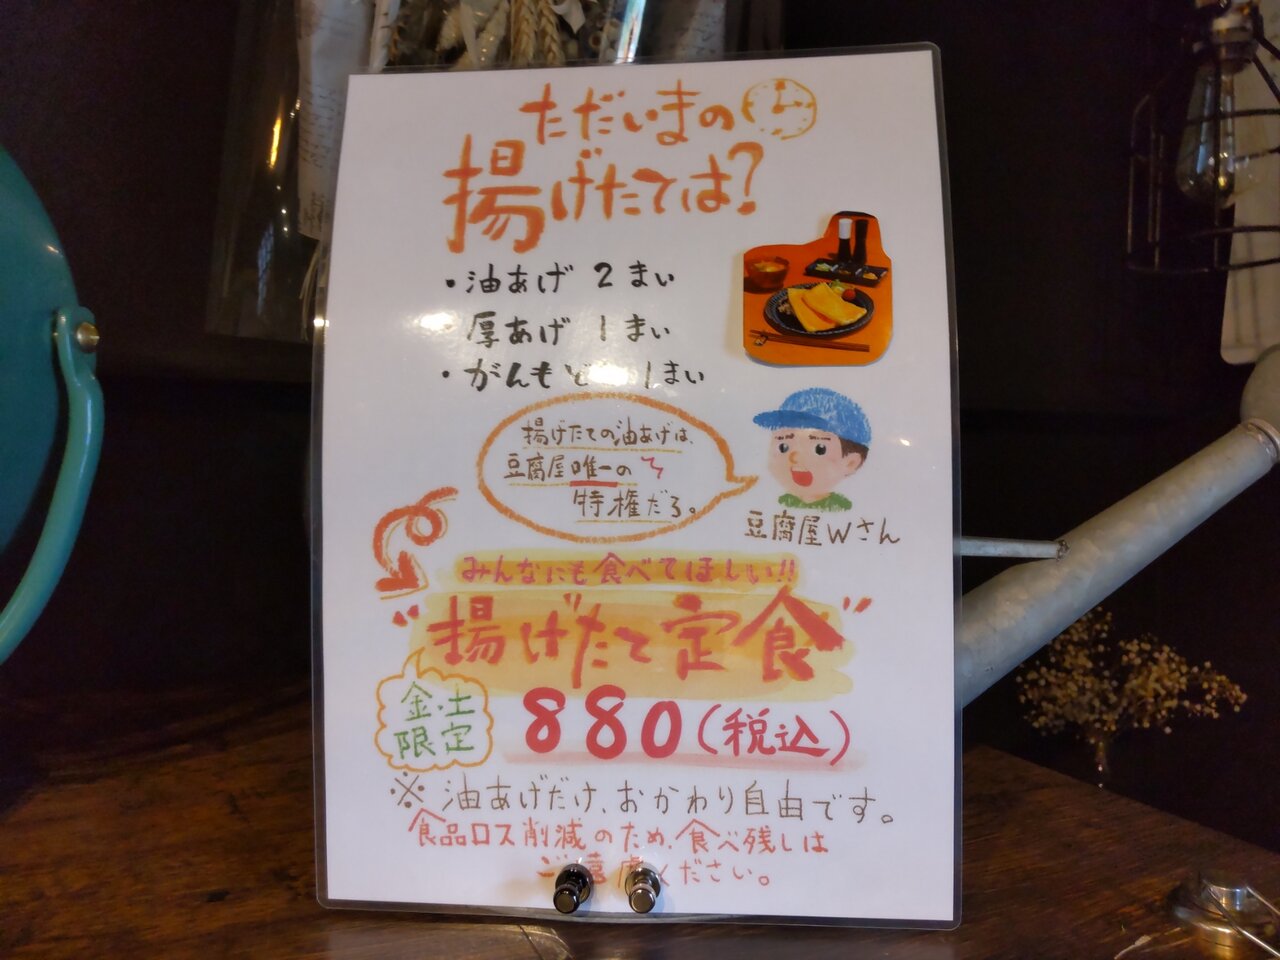 ただいまの
揚げたては?
・油あげ 2まい
・厚あげ 1まい
・がんもど 1まい
揚げたての油あげは、
豆腐屋唯一の
特権だろ。
豆腐屋Wさん
みんなにも食べてほしい!!
"揚げたて定食"
金・土
限定
880(税込)
※油あげだけ、おかわり自由です。
食品ロス削減のため、食べ残しは
ご遠慮ください。